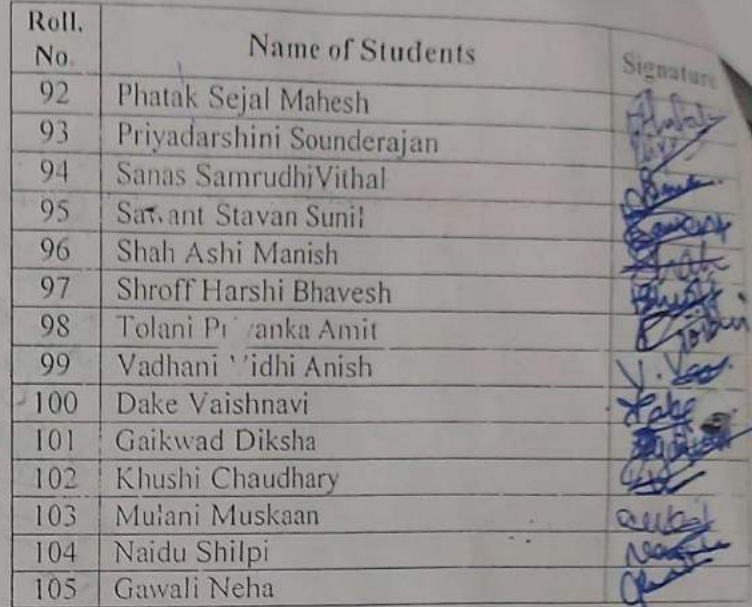 Roll. No. Name of Students Signature
92 Phatak Sejal Mahesh
93 Priyadarshini Sounderajan
94 Sanas SamrudhiVithal
95 Sawant Stavan Sunil
96 Shah Ashi Manish Shah
97 Shroff Harshi Bhavesh
98 Tolani Pr anka Amit
99 Vadhani idhi Anish
100 Dake Vaishnavi
101 Gaikwad Diksha
102 Khushi Chaudhary
103 Mulani Muskaan
104 Naidu Shilpi
105 Gawali Neha